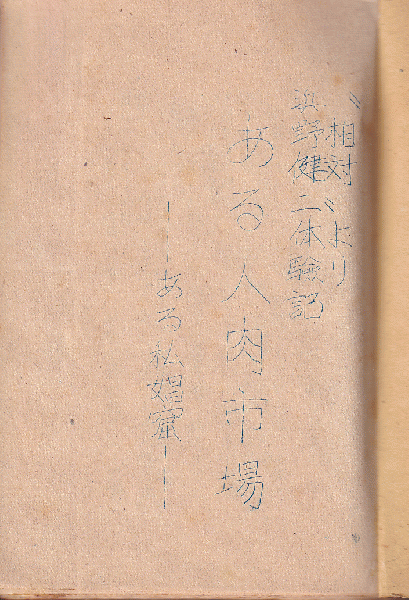 〝相対〟より
浜野健二体験記
ある人肉市場
――ある私娼窟――